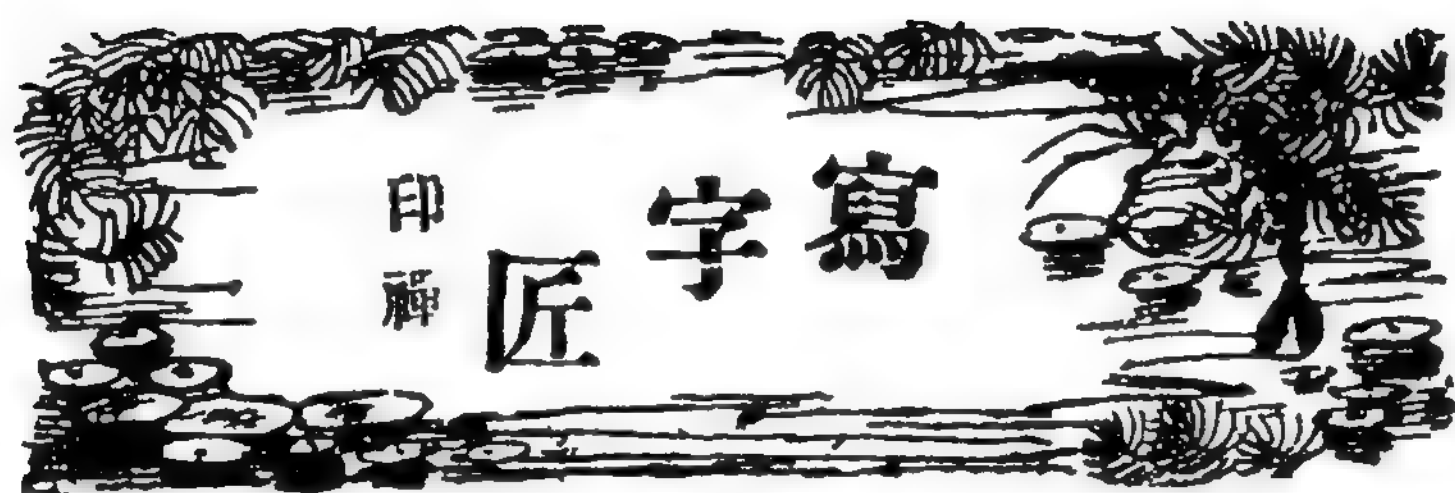 寫字匠
印禪